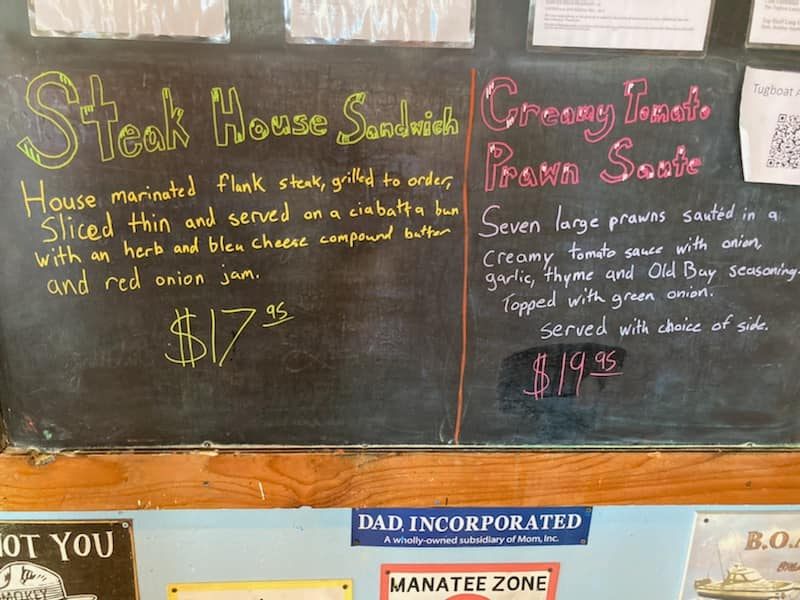 Steak House Sandwich
House marinated flank steak, grilled to order,
Sliced thin and served on a ciabatta bun
with an herb and bleu cheese compound butter
and red onion jam.
$17.95
Creamy Tomato
Prawn Saute
Seven large prawns sautéd in a
creamy tomato sauce with onion,
garlic, thyme and Old Bay seasoning.
Topped with green onion.
served with choice of side.
$19.95
Tugboat
NOT YOU
SMOKEY
DAD, INCORPORATED
A wholly-owned subsidiary of Mom, Inc.
MANATEE ZONE
B.O.A